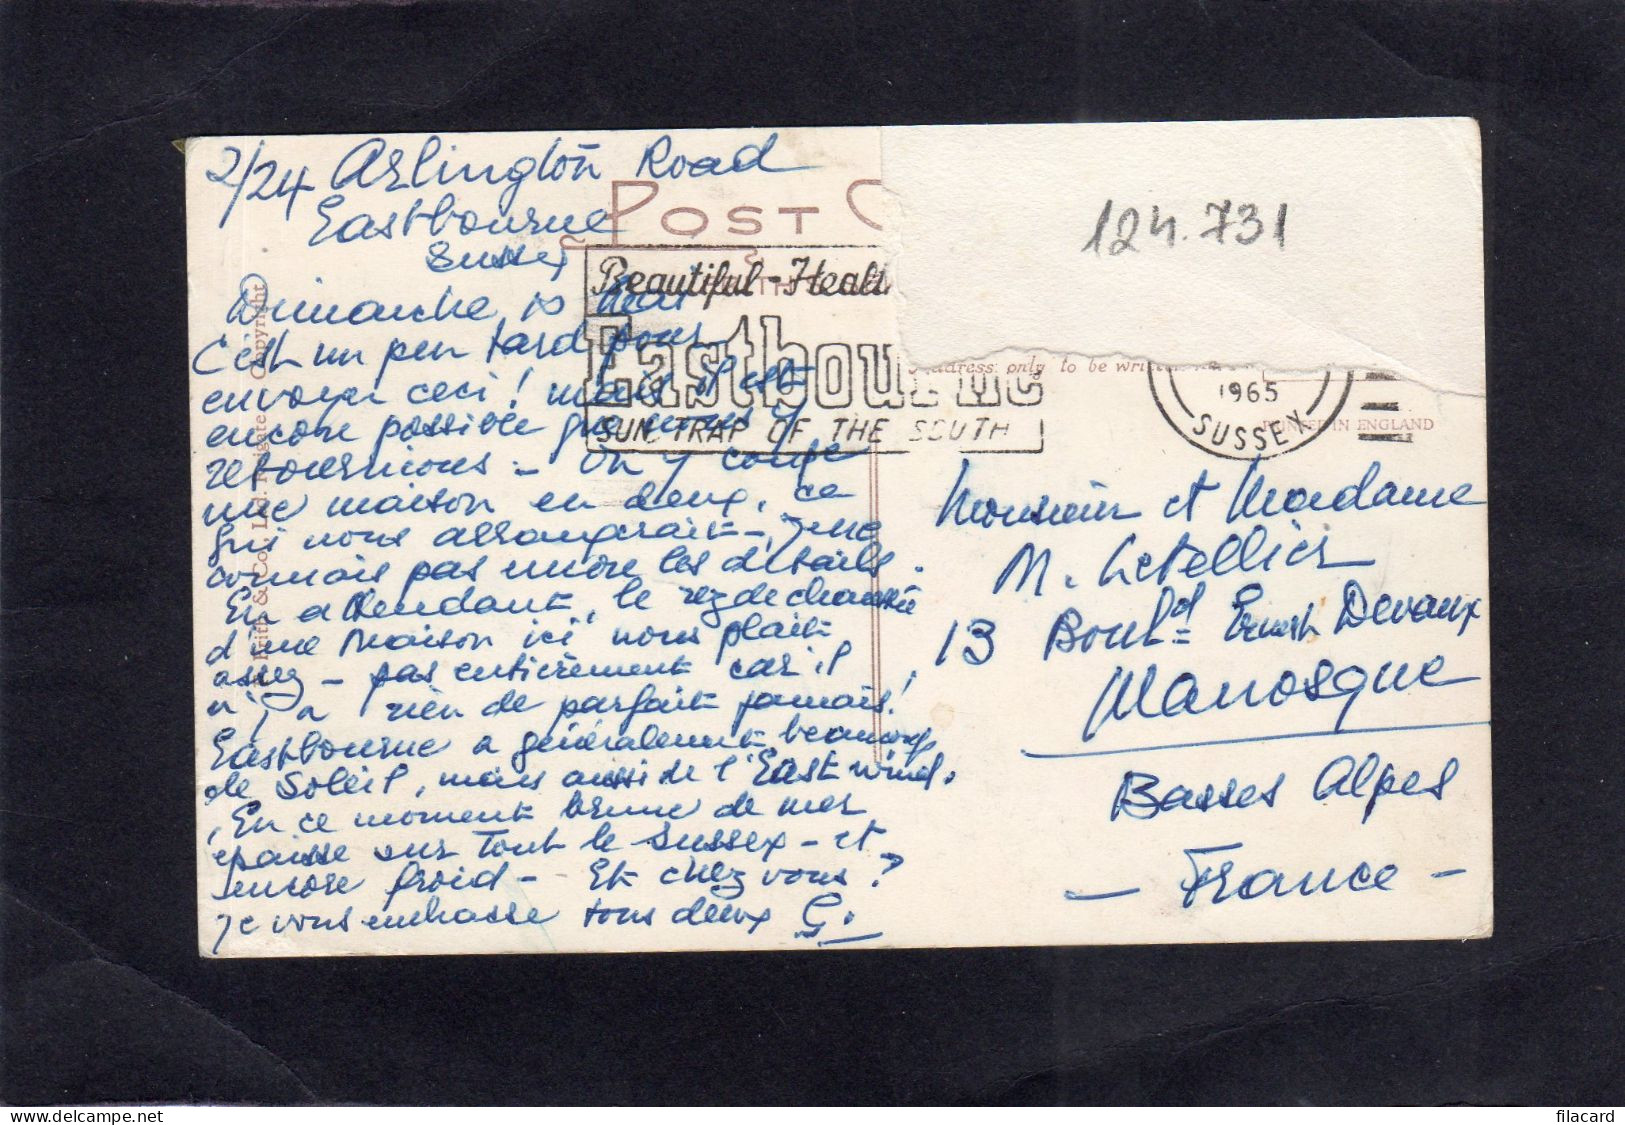 2/24 Arlington Road
Eastbourne
Sussex
Dimanche
C'est un peu tard pour
envoyer ceci! mais il est
encore possible que nous y
retournions - On y coupe
une maison en deux, ce
qui nous arrangerait -, je ne
connais pas encore les détails.
En attendant, le rez de chaussée
d'une maison ici nous plait
assez - pas entièrement car il
n'y a rien de parfait jamais!
Eastbourne a généralement beaucoup
de Soleil, mais aussi de l'East wind.
En ce moment brume de mer
épaisse sur Tout le Sussex - et
encore froid - Et chez vous?
je vous embrasse tous deux G.
POST C
Beautiful - Healt
Eastbourne
SUN TRAP OF THE SOUTH
124.731
Address only to be writ
1965
SUSSEX
PRINTED IN ENGLAND
Monsieur et Madame
M. Letellier
13 Bould Ernest Devaux
Manosque
Basses Alpes
- France -
Frith & Co., Ltd. Reigate Copyright
filacard